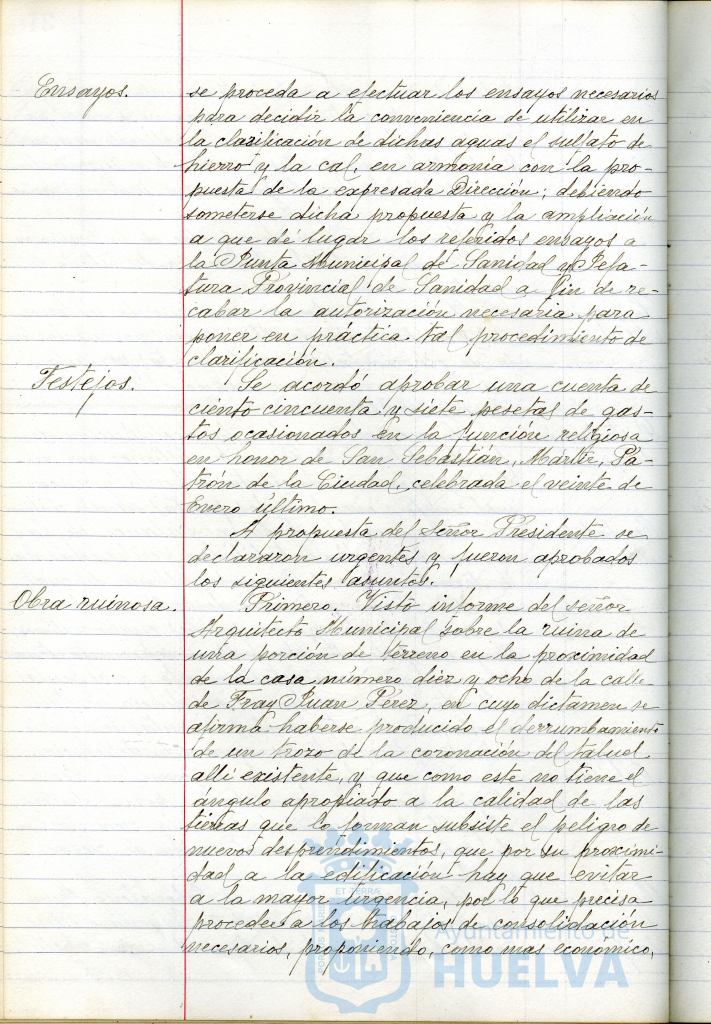 Ensayos.
se proceda a efectuar los ensayos necesarios
para decidir la conveniencia de utilizar en
la clarificación de dichas aguas el sulfato de
hierro y la cal, en armonía con la pro-
puesta de la expresada Dirección; debiendo
someterse dicha propuesta y la ampliación
a que dé lugar los referidos ensayos a
la Junta Municipal de Sanidad y Jefa-
tura Provincial de Sanidad a fin de re-
cabar la autorización necesaria para
poner en práctica tal procedimiento de
clarificación.
Festejos.
Se acordó aprobar una cuenta de
ciento cincuenta y siete pesetas de gas-
tos ocasionados en la función religiosa
en honor de San Sebastián, Martir, Pa-
trón de la Ciudad, celebrada el veinte de
Enero último.
A propuesta del Señor Presidente se
declararon urgentes y fueron aprobados
los siguientes asuntos.
Obra ruinosa.
Primero. Visto informe del señor
Arquitecto Municipal sobre la ruina de
una porción de terreno en la proximidad
de la casa número diez y ocho de la calle
de Fray Juan Pérez, en cuyo dictamen se
afirma haberse producido el derrumbamiento
de un trozo de la coronación del talud
allí existente, y que como este no tiene el
ángulo apropiado a la calidad de las
tierras que lo forman subsiste el peligro de
nuevos desprendimientos, que por su proximi-
dad a la edificación hay que evitar
a la mayor urgencia, por lo que precisa
proceder a los trabajos de consolidación
necesarios, proponiendo, como mas económico,
ET TERRÆ
Ayuntamiento de
HUELVA